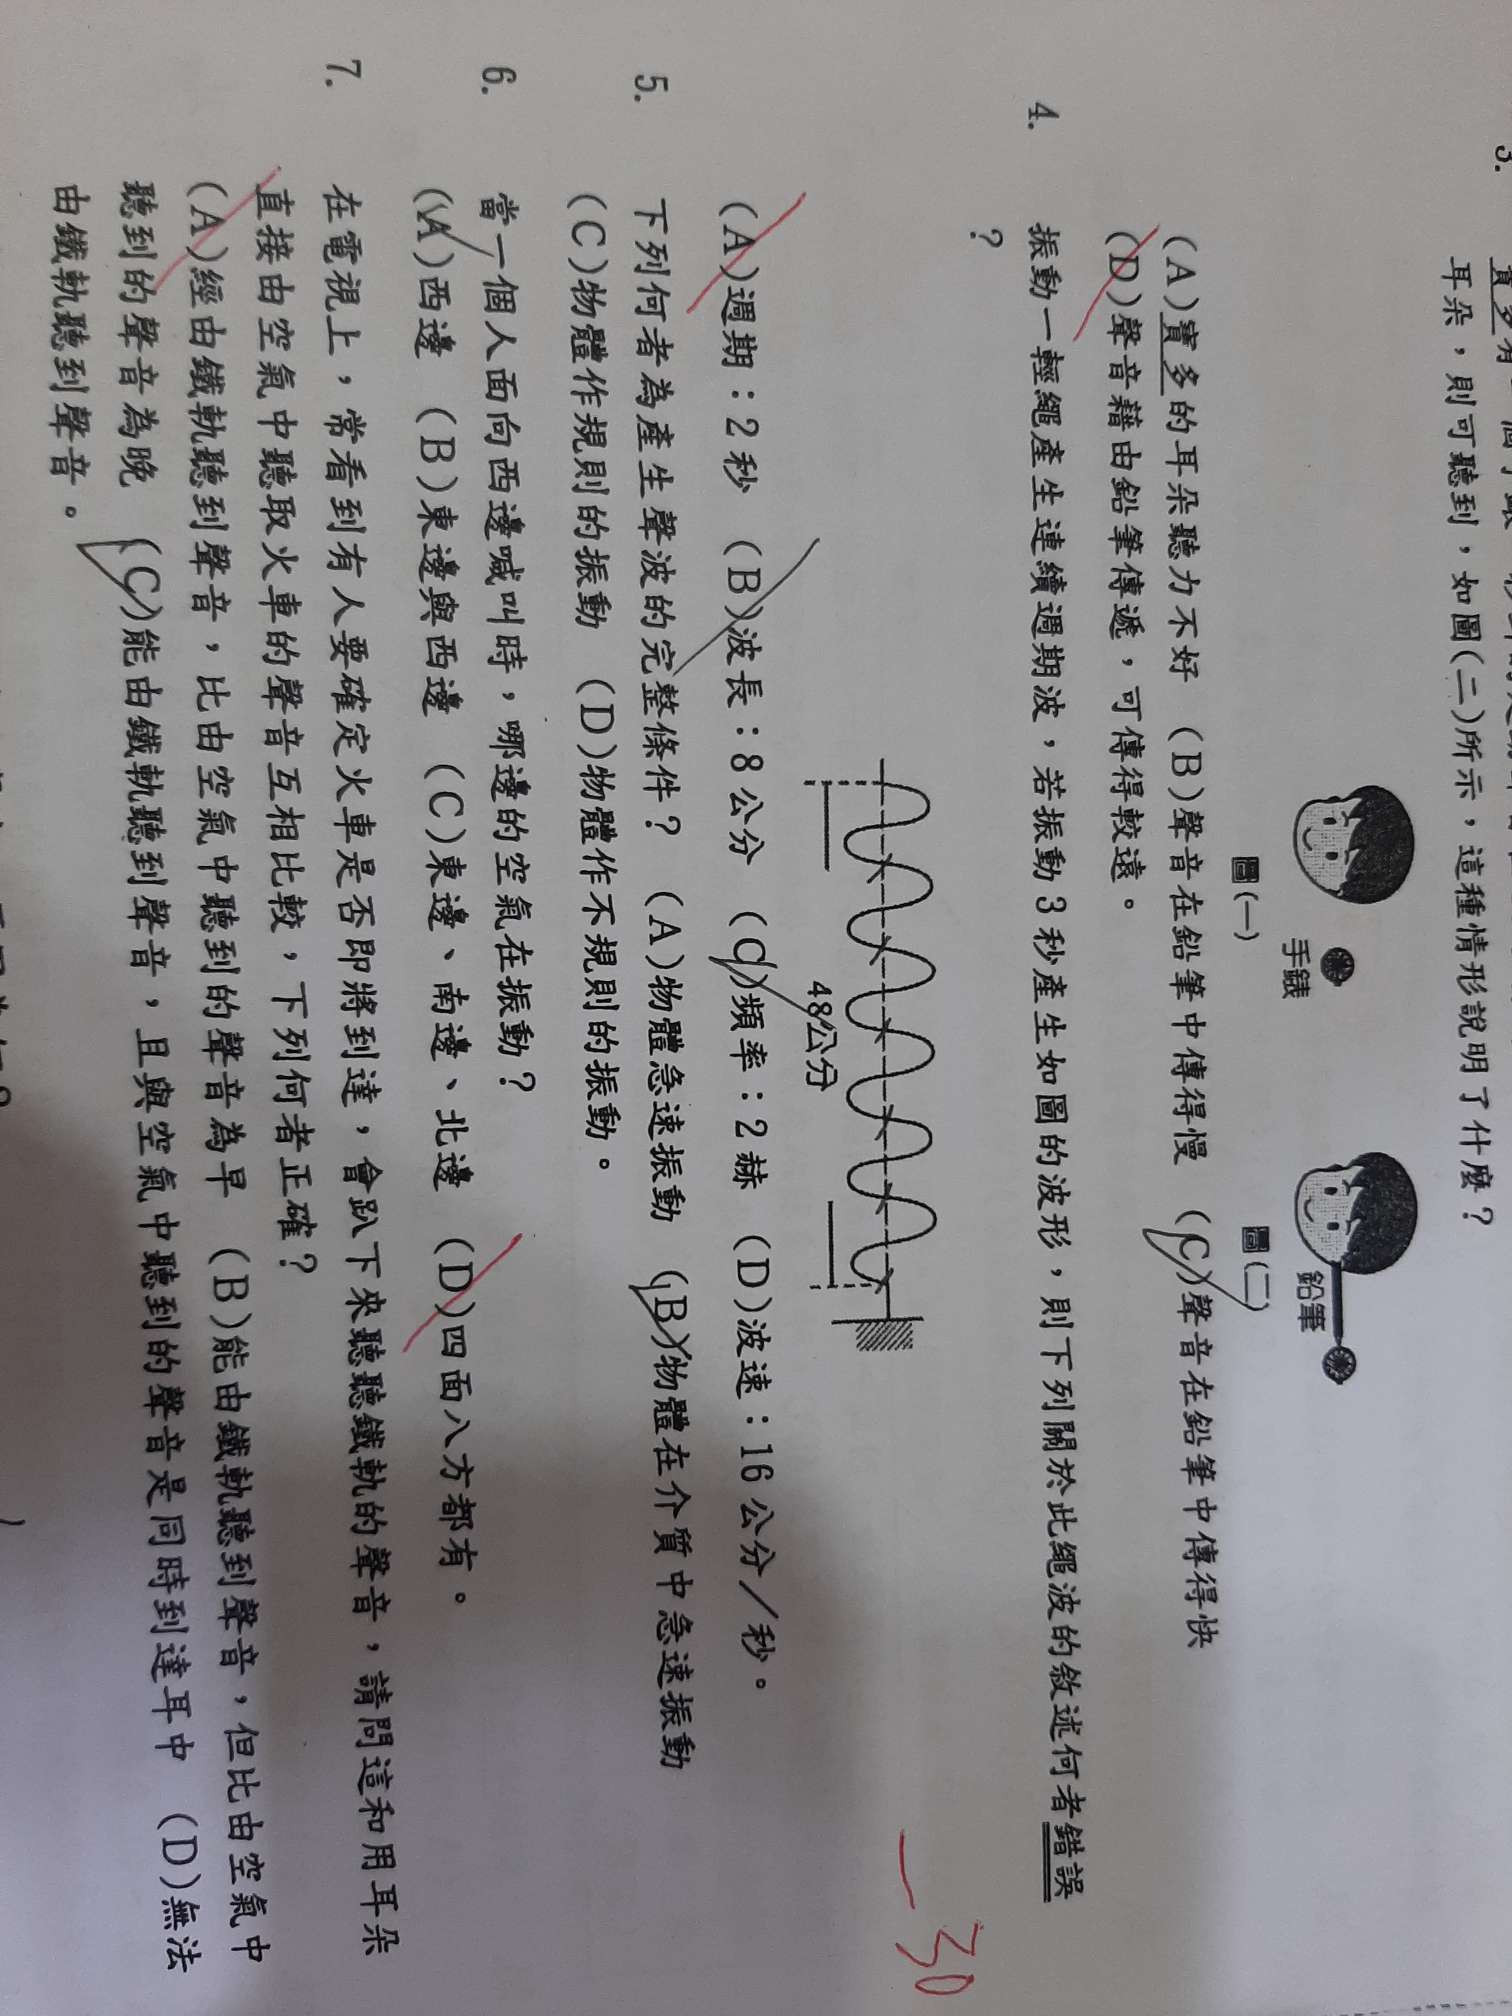 3.
耳朵，則可聽到，如圖(二)所示，這種情形說明了什麼？
手錶
鉛筆
圖(一)
圖(二)
(A)寶多的耳朵聽力不好 (B)聲音在鉛筆中傳得慢 (C)聲音在鉛筆中傳得快
(D)聲音藉由鉛筆傳遞，可傳得較遠。
4. 振動一輕繩產生連續週期波，若振動3秒產生如圖的波形，則下列關於此繩波的敘述何者錯誤
？
48公分
-30
(A)週期：2秒 (B)波長：8公分 (C)頻率：2赫 (D)波速：16公分／秒。
5. 下列何者為產生聲波的完整條件？ (A)物體急速振動 (B)物體在介質中急速振動
(C)物體作規則的振動 (D)物體作不規則的振動。
6. 當一個人面向西邊喊叫時，哪邊的空氣在振動？
(A)西邊 (B)東邊與西邊 (C)東邊、南邊、北邊 (D)四面八方都有。
7. 在電視上，常看到有人要確定火車是否即將到達，會趴下來聽聽鐵軌的聲音，請問這和用耳朵
直接由空氣中聽取火車的聲音互相比較，下列何者正確？
(A)經由鐵軌聽到聲音，比由空氣中聽到的聲音為早 (B)能由鐵軌聽到聲音，但比由空氣中
聽到的聲音為晚 (C)能由鐵軌聽到聲音，且與空氣中聽到的聲音是同時到達耳中 (D)無法
由鐵軌聽到聲音。